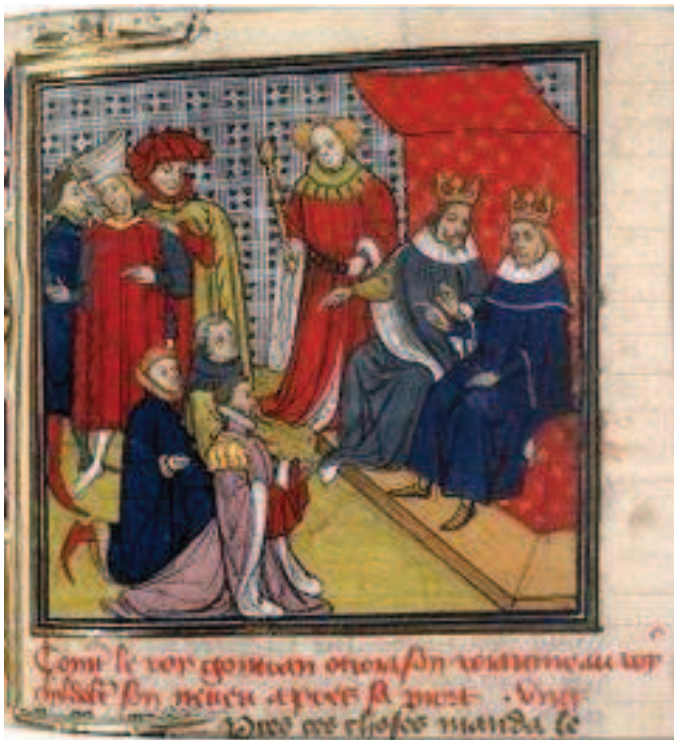 le roy gontran otroia son roiaume au roy
son neueu apres sa mort
pres ces choses manda le